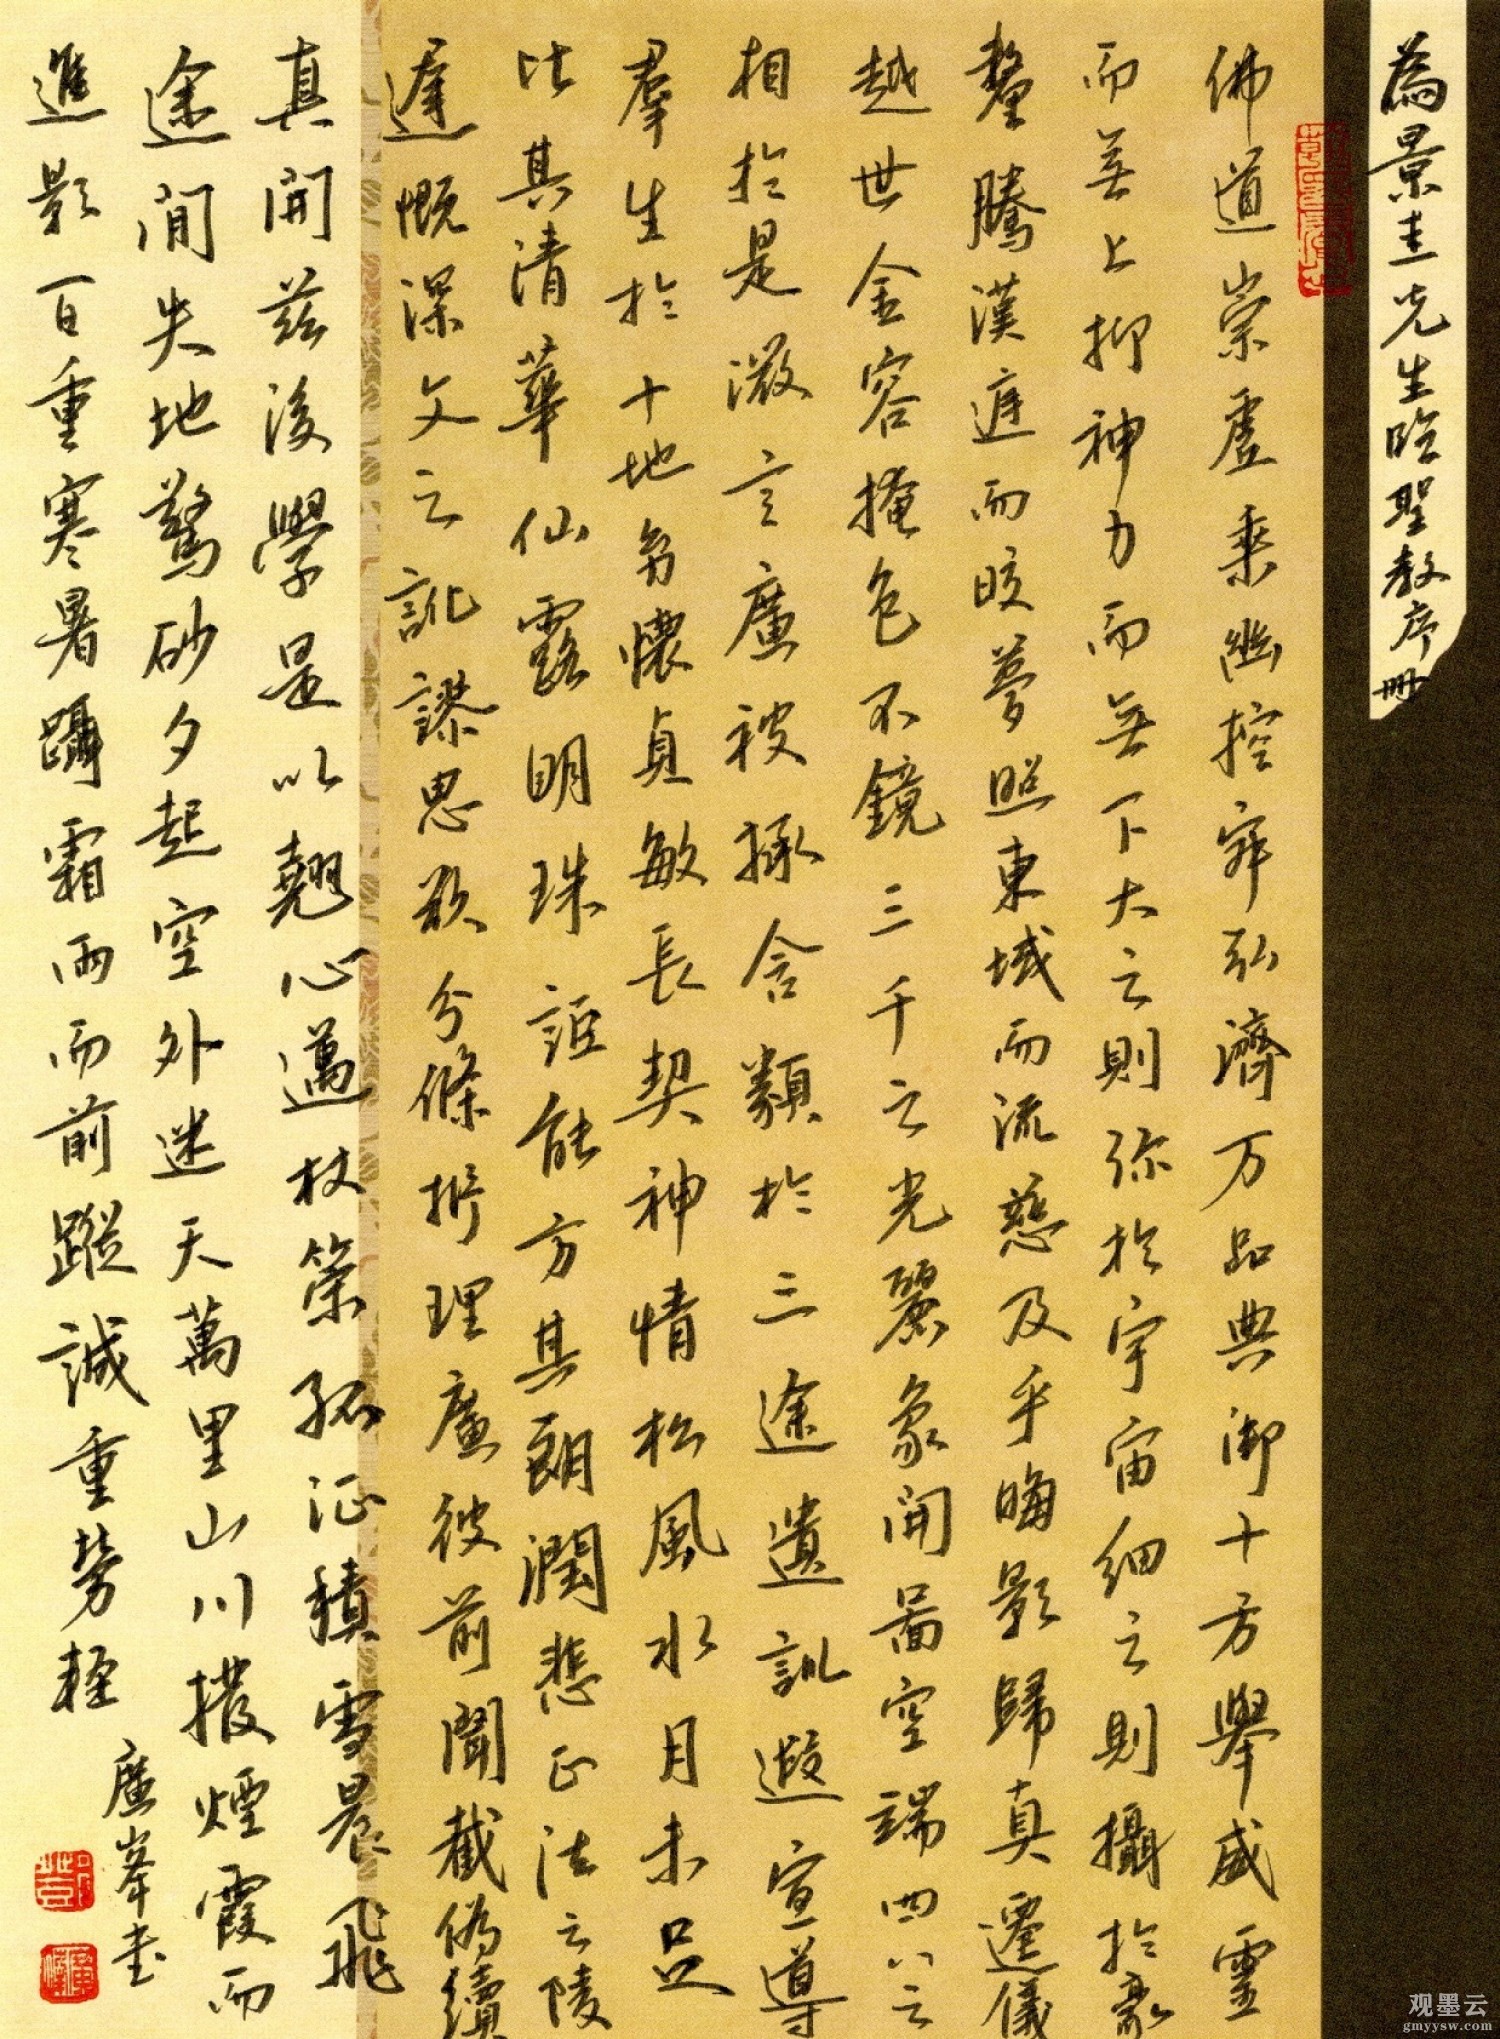 為景圭先生臨聖教序冊
佛道崇虛乘幽控寂弘濟万品典御十方舉威靈
而無上抑神力而無下大之則弥於宇宙細之則攝於豪
釐騰漢庭而皎夢照東域而流慈及乎晦影歸真遷儀
越世金容掩色不鏡三千之光麗象開圖空端四八之
相於是微言廣被拯含類於三途遺訓遐宣導
羣生於十地匆懷貞敏長契神情松風水月未足
比其清華仙露明珠詎能方其朗潤悲正法之陵
遲慨深文之訛謬思欲分條析理廣彼前聞截偽續
真開茲後學是以翹心邁杖策孤征積雪晨飛
途間失地驚砂夕起空外迷天萬里山川撥煙霞而
進影百重寒暑躡霜雨而前蹤誠重勞輕
廣峯书
观墨云
gmyysw.com